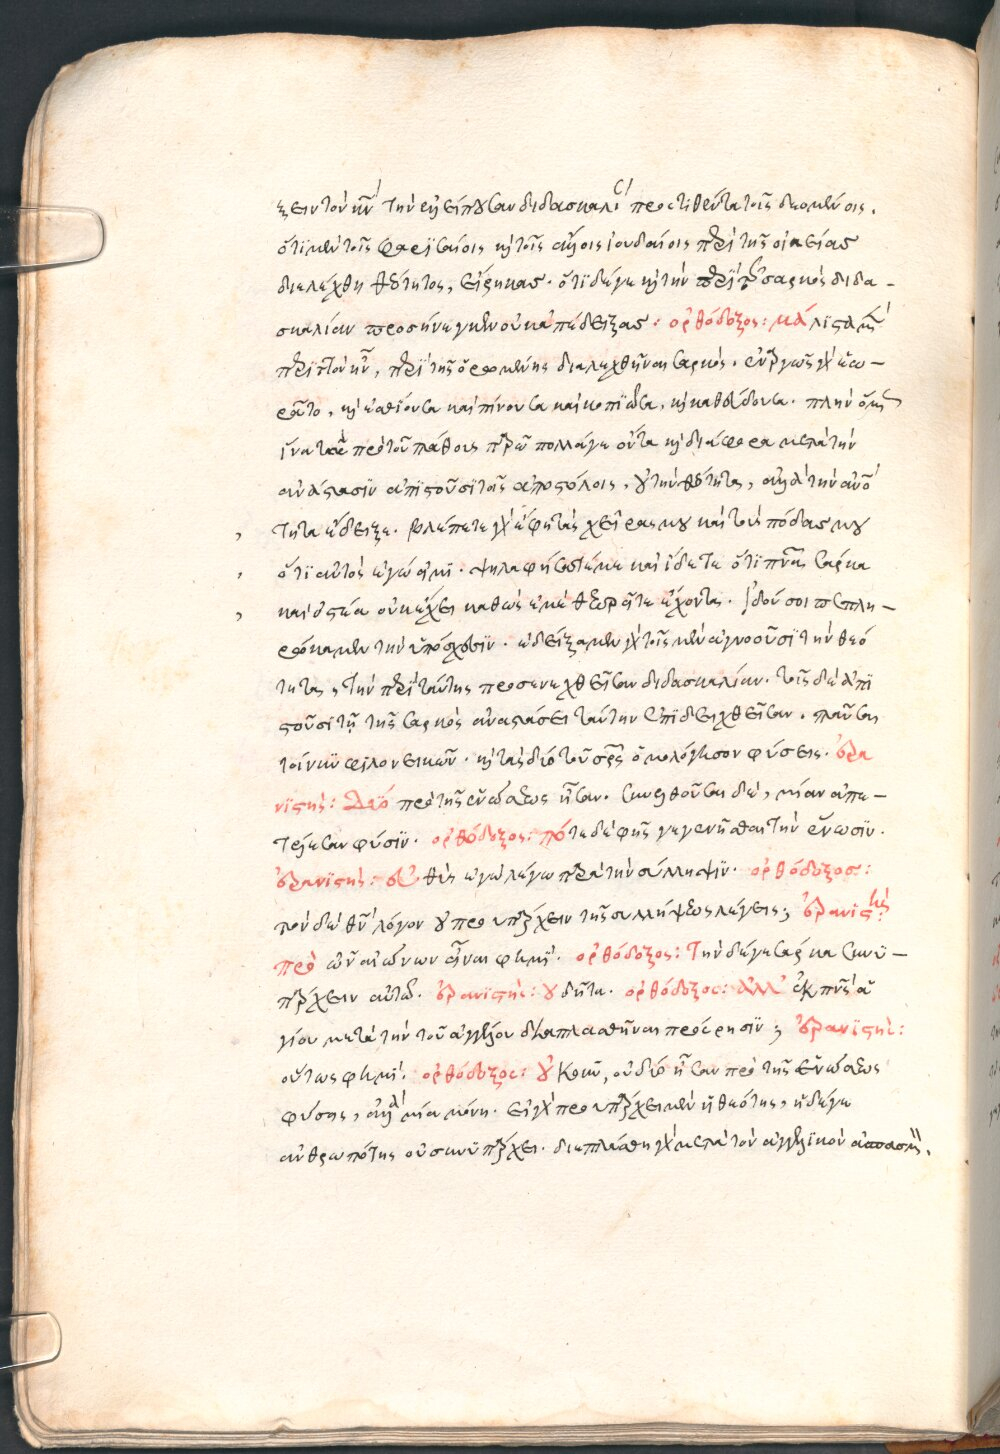 ξειν τὸν κν̅ τὴν ἐλλείπουσαν διδασκαλί προστιθέντα τοῖς δεομένοις.
ὅτι μὲν τοῖς φαρισαίοις κ τοῖς ἄλλοις ἰουδαίοις περὶ τῆς οἰκείας
διελέχθη θεότητος, εἴρηκας. ὅτι δέ γε κ τὴν περὶ τ σαρκὸς διδα-
σκαλίαν προσήνεγκεν οὐκ ἀπέδειξας. ὀρθόδοξος: μάλιστα μ
περιττὸν ἦν, περὶ τῆς ὁρωμένης διαλεχθῆναι σαρκός. ἐναργῶς γὰρ ἑω-
ρᾶτο, κ ἐσθίουσα καὶ πίνουσα καὶ κοπιῶσα, κ καθεύδουσα. πλὴν ὅμως
ἵνα τὰ πρὸ τοῦ πάθους παρῶ πολλά γε ὄντα κ διάφορα μετὰ τὴν
ἀνάστασιν ἀπιστοῦσι τοῖς ἀποστόλοις, οὐ τὴν θεότητα, ἀλλὰ τὴν ἀνό
τητα ἔδειξε. βλέπετε γὰρ ἔφη τὰς χεῖρας μου καὶ τοὺς πόδας μου
ὅτι αὐτὸς ἐγώ εἰμι. ψηλαφήσατέ με καὶ ἴδετε ὅτι πνα̅ σάρκα
καὶ ὀστέα οὐκ ἔχει καθὼς ἐμὲ θεωρεῖτε ἔχοντα. ἰδού σοι πεπλη-
ρώκαμεν τὴν ὑπόσχεσιν. ἐδείξαμεν γὰρ τοῖς μὲν ἀγνοοῦσι τὴν θεό
τητα, τὴν περὶ ταύτης προσενεχθεῖσαν διδασκαλίαν. τοῖς δὲ ἀπι
στοῦσι τῇ τῆς σαρκὸς ἀναστάσει ταύτην ἐπιδειχθεῖσαν. παῦσαι
τοίνυν φιλονεικῶν. κ τὰς δύο τοῦ σρ̅ς ὁμολόγησον φύσεις. ἐρα
νιστής: Δύο πρὸ τῆς ἑνώσεως ἦσαν. συνελθοῦσαι δέ, μίαν ἀπε-
τέλεσαν φύσιν. ὀρθόδοξος: πότε δὲ φῂς γεγενῆσθαι τὴν ἕνωσιν.
ἐρανιστής: εὐθὺς ἐγὼ λέγω παρὰ τὴν σύλληψιν. ὀρθόδοξος:
τὸν δὲ θν̅ λόγον οὐ προυπάρχειν τῆς συλλήψεως λέγεις; ἐρανιστής:
πρὸ τῶν αἰώνων εἶναι φημί. ὀρθόδοξος: Τὴν δέ γε σάρκα συνυ-
πάρχειν αὐτῷ. ἐρανιστής: οὐ δῆτα. ὀρθόδοξος: ἀλλ' ἐκ πνς̅ ἁ
γίου μετὰ τὴν τοῦ ἀγγέλου διαπλασθῆναι πρόσρησιν; ἐρανιστής:
οὕτως φημί. ὀρθόδοξος: οὐκοῦν, οὐ δύο ἦσαν πρὸ τῆς ἑνώσεως
φύσης, ἀλλὰ μία μόνη. εἰ γὰρ προυπάρχει μὲν ἡ θεότης, ἡ δέ γε
ἀνθρωπότης οὐ συνυπάρχει. διεπλάσθη γὰρ μετὰ τὸν ἀγγελικὸν ἀσπασμ.